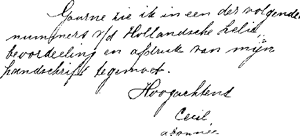 Gaarne zie ik in een der volgende
nummers v/d Hollandsche helio
beoordeeling en afdruk van mijn
handschrift tegemoet.
Hoogachtend
Cecil
abonnée